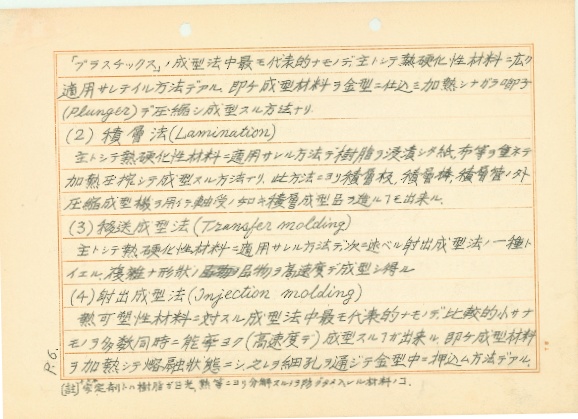 「プラスチックス」ノ成型法中最モ代表的ナモノデ主トシテ熱硬化性材料ニ広ク
適用サレテイル方法デアル. 即チ成型材料ヲ金型ニ仕込ミ加熱シナガラ喞子
(Plunger)デ圧縮シ成型スル方法ナリ.
(2) 積層法(Lamination)
主トシテ熱硬化性材料ニ適用サレル方法デ樹脂ヲ浸漬シタ紙,布等ヲ重ネテ
加熱圧搾シテ成型スル方法ナリ. 此方法ニヨリ積層板,積層棒,積層管ノ外
圧縮成型機ヲ用イテ軸受ノ如キ積層成型品ヲ造ルヿモ出来ル.
(3) 移送成型法(Transfer molding)
主トシテ熱硬化性材料ニ適用サレル方法デ次ニ述ベル射出成型法ノ一種ト
イエル. 複雑ナ形状ノ品物ヲ高速度デ成型シ得ル
(4) 射出成型法(Injection molding)
熱可塑性材料ニ対スル成型法中最モ代表的ナモノデ比較的小サナ
モノヲ多数同時ニ能率ヨク(高速度デ)成型スルヿガ出来ル. 即チ成型材料
ヲ加熱シテ熔融状態ニシ之レヲ細孔ヲ通ジテ金型中ニ押込ム方法デアル.
[註] 安定剤トハ樹脂ガ日光,熱等ニヨリ分解スルノヲ防グタメ入レル材料ノコ.
P.6.